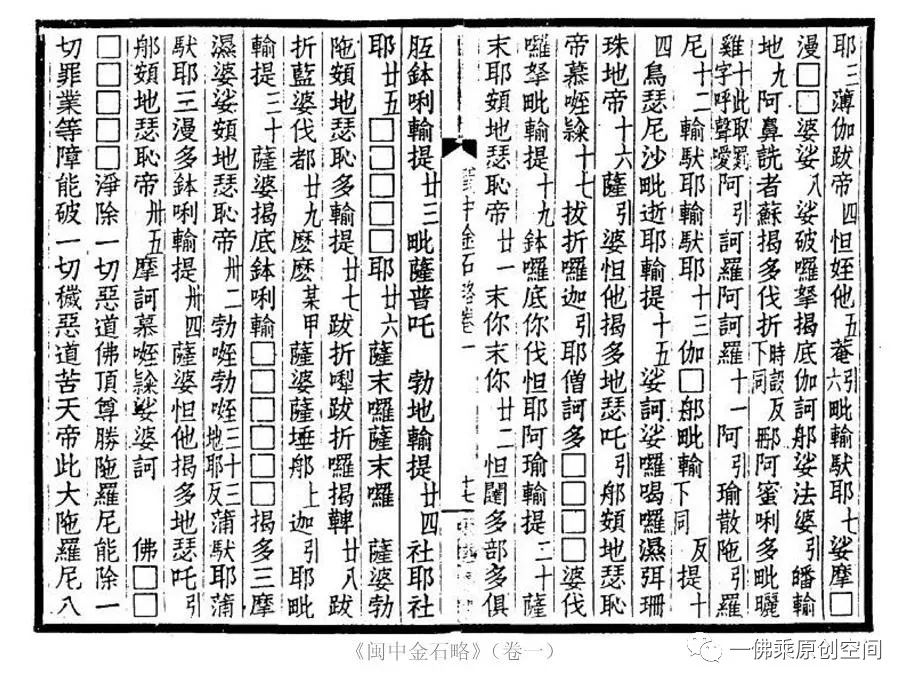 耶三薄伽跋帝四怛姪他五菴引六毗輸馱耶七娑摩□
漫□□婆娑八娑破囉拏揭底伽訶那娑法婆引皤輸
地九阿鼻詵者蘇揭多伐折時設反下同那阿蜜唎多毗曬
雞十此取罰字呼聲愛阿引訶羅阿訶羅十一阿引瑜散陁引羅
尼十二輸馱耶輸馱耶十三伽□那毗輸下同反提十
四烏瑟尼沙毗逝耶輸提十五娑訶娑囉喝囉濕弭珊
珠地帝十六薩引婆怛他揭多地瑟吒引那頞地瑟恥
帝慕㗌隸十七拔折囉迦引耶僧訶多□□□□婆伐
囉拏毗輸提十九鉢囉底你伐怛耶阿瑜輸提二十薩
末耶頞地瑟恥帝廿一末你末你廿二怛闥多部多俱
閩中金石略卷一 十七
胝鉢唎輸提廿三毗薩普吒 勃地輸提廿四社耶社
耶廿五□□□□□耶廿六薩末囉薩末囉 薩婆勃
陁頞地瑟恥多輸提廿七跋折犁跋折囉揭鞞廿八跋
折藍婆伐都廿九麽麽某甲薩婆薩埵那上迦引耶毗
輸提三十薩婆揭底鉢唎輸□□□□□□揭多三摩
濕婆娑頞地瑟恥帝卅二勃㗌勃㗌三十三地耶反蒲馱耶蒲
馱耶三漫多鉢唎輸提卅四薩婆怛他揭多地瑟吒引
那頞地瑟恥帝卅五摩訶慕㗌隸娑婆訶 佛□□
□□□□□淨除一切惡道佛頂尊勝陁羅尼能除一
切罪業等障能破一切穢惡道苦天帝此大陁羅尼八
《闽中金石略》（卷一）
一佛乘原创空间